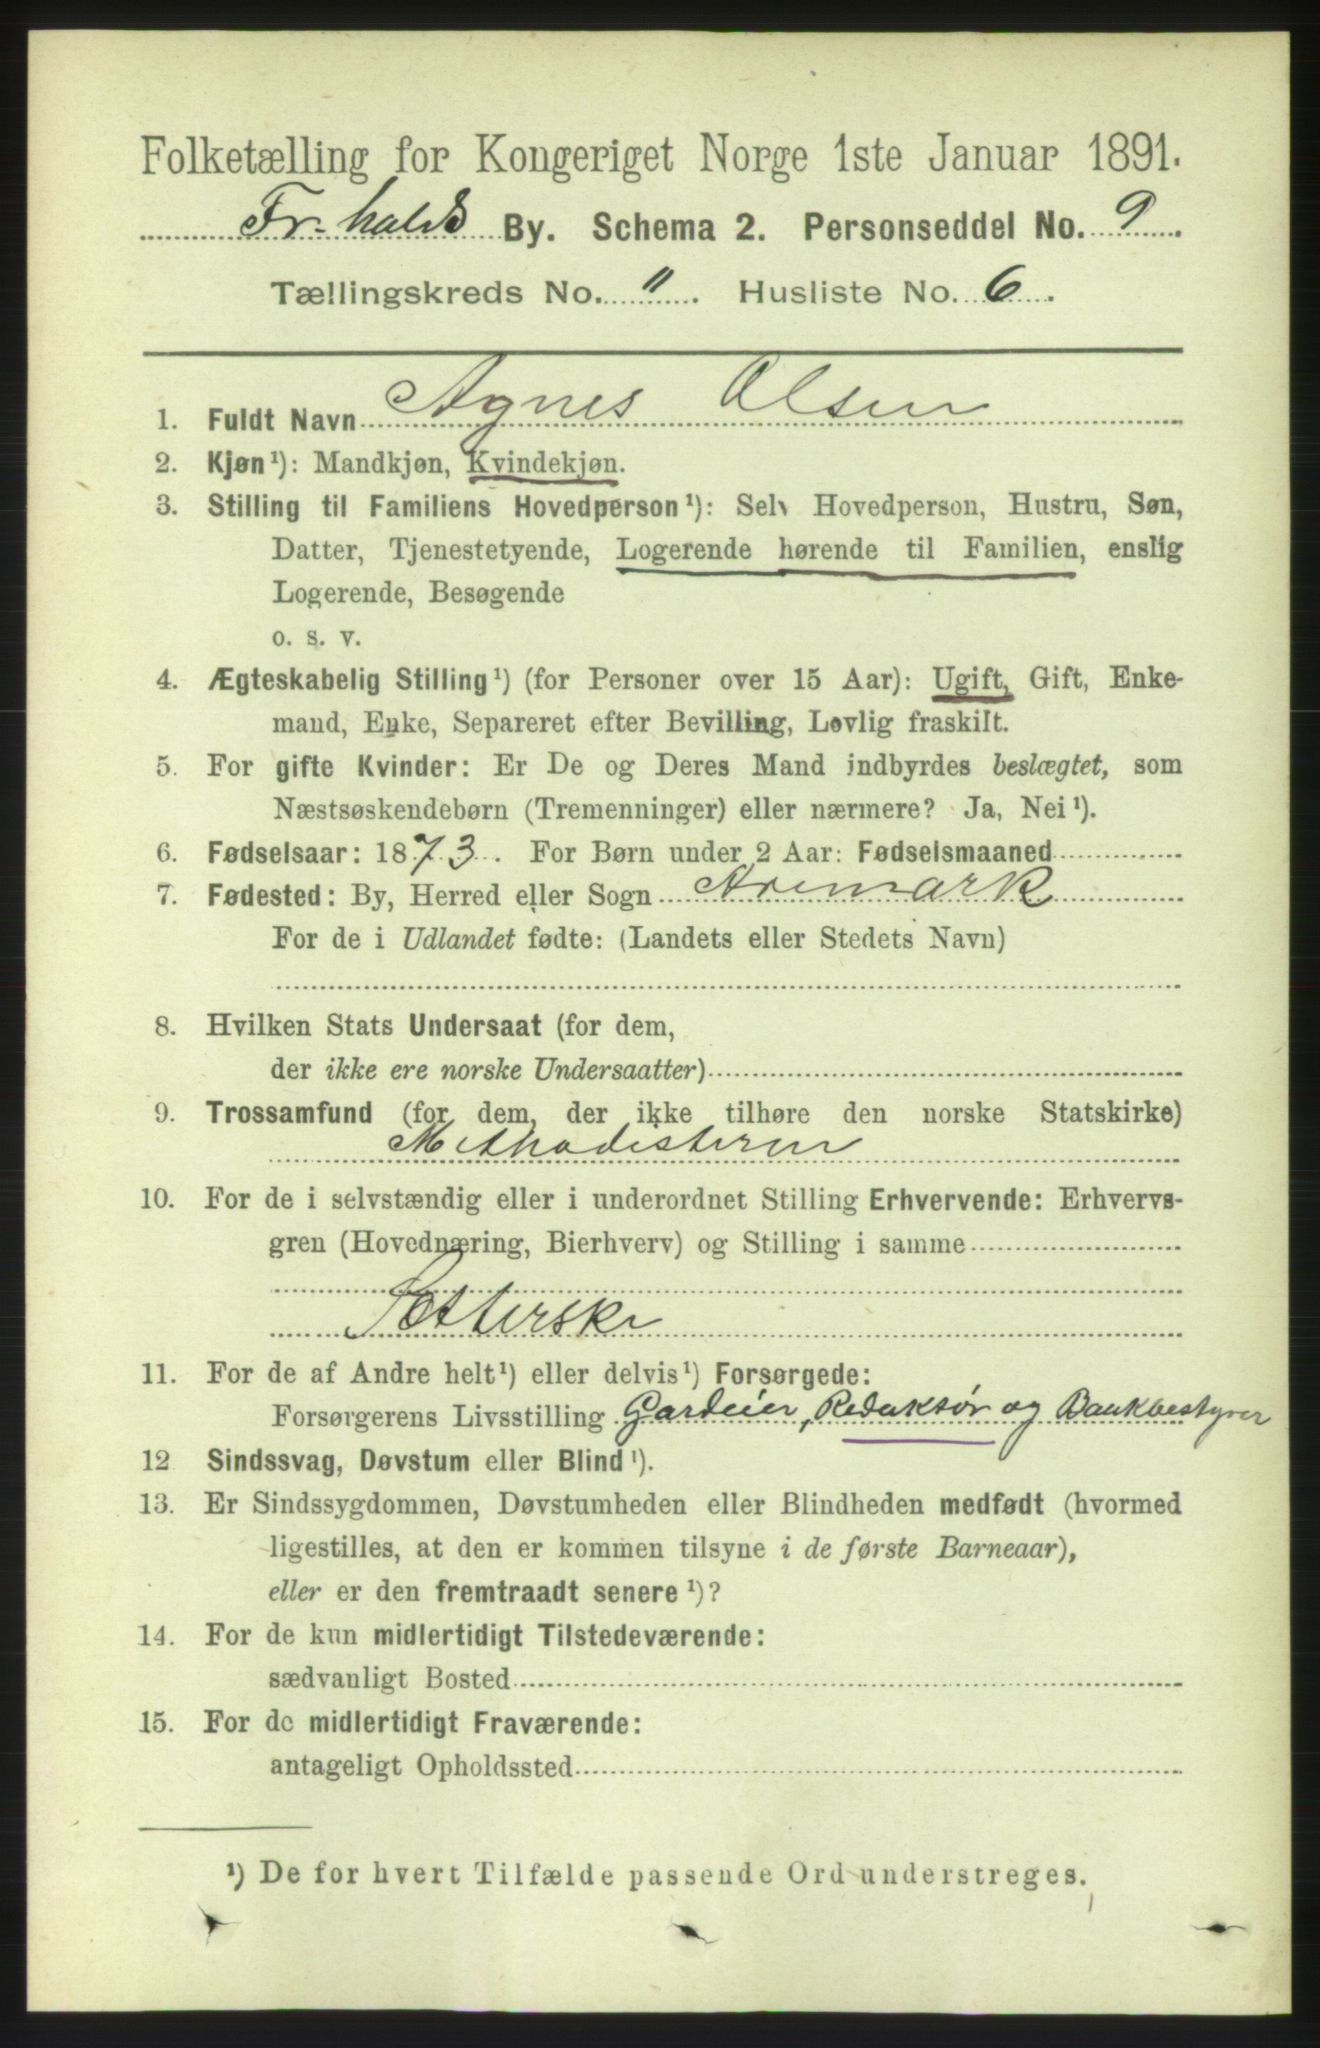 Folketælling for Kongeriget Norge 1ste Januar 1891.
Fr.halds By. Schema 2. Personseddel No. 9.
Tællingskreds No. 11. Husliste No. 6.
1. Fuldt Navn Agnes Olsen
2. Kjøn¹): Mandkjøn, Kvindekjøn.
3. Stilling til Familiens Hovedperson¹): Selv Hovedperson, Hustru, Søn,
Datter, Tjenestetyende, Logerende hørende til Familien, enslig
Logerende, Besøgende
o. s. v.
4. Ægteskabelig Stilling¹) (for Personer over 15 Aar): Ugift, Gift, Enke-
mand, Enke, Separeret efter Bevilling, Lovlig fraskilt.
5. For gifte Kvinder: Er De og Deres Mand indbyrdes beslægtet, som
Næstsøskendebørn (Tremenninger) eller nærmere? Ja, Nei¹).
6. Fødselsaar: 1873. For Børn under 2 Aar: Fødselsmaaned
7. Fødested: By, Herred eller Sogn Aremark
For de i Udlandet fødte: (Landets eller Stedets Navn)
8. Hvilken Stats Undersaat (for dem,
der ikke ere norske Undersaatter)
9. Trossamfund (for dem, der ikke tilhøre den norske Statskirke)
Methodisterne
10. For de i selvstændig eller i underordnet Stilling Erhvervende: Erhvervs-
gren (Hovednæring, Bierhverv) og Stilling i samme
Sætterske
11. For de af Andre helt¹) eller delvis¹) Forsørgede:
Forsørgerens Livsstilling Gardeier, Redaktør og Bankbestyrer
12 Sindssvag, Døvstum eller Blind¹).
13. Er Sindssygdommen, Døvstumheden eller Blindheden medfødt (hvormed
ligestilles, at den er kommen tilsyne i de første Barneaar),
eller er den fremtraadt senere¹)?
14. For de kun midlertidigt Tilstedeværende:
sædvanligt Bosted
15. For de midlertidigt Fraværende:
antageligt Opholdssted
¹) De for hvert Tilfælde passende Ord understreges.